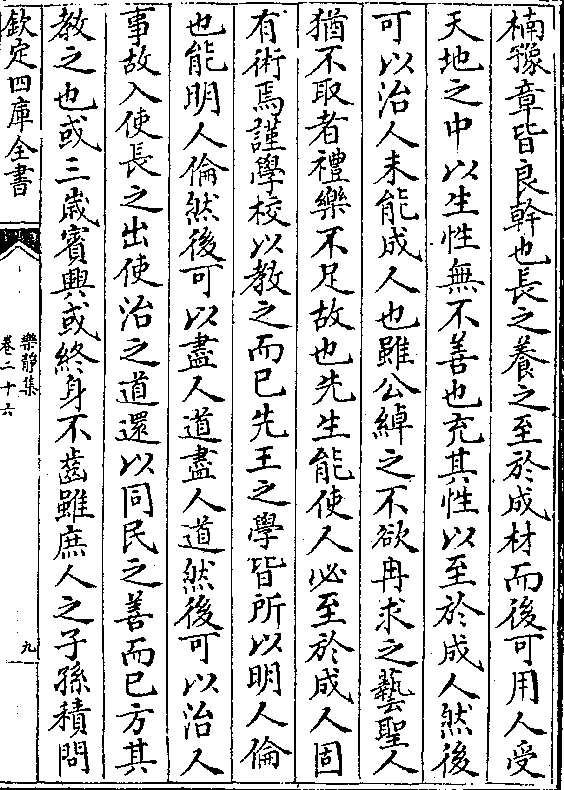 楠豫章皆良幹也長之養之至於成材而後可用人受
天地之中以生性無不善也充其性以至於成人然後
可以治人未能成人也雖公綽之不欲冉求之藝聖人
猶不取者禮樂不足故也先生能使人必至於成人固
有術焉謹學校以教之而已先王之學皆所以明人倫
也能明人倫然後可以盡人道盡人道然後可以治人
事故入使長之出使治之道還以同民之善而已方其
教之也或三歲賓興或終身不齒雖庶人之子孫積問
欽定四庫全書
樂靜集
卷二十六
九